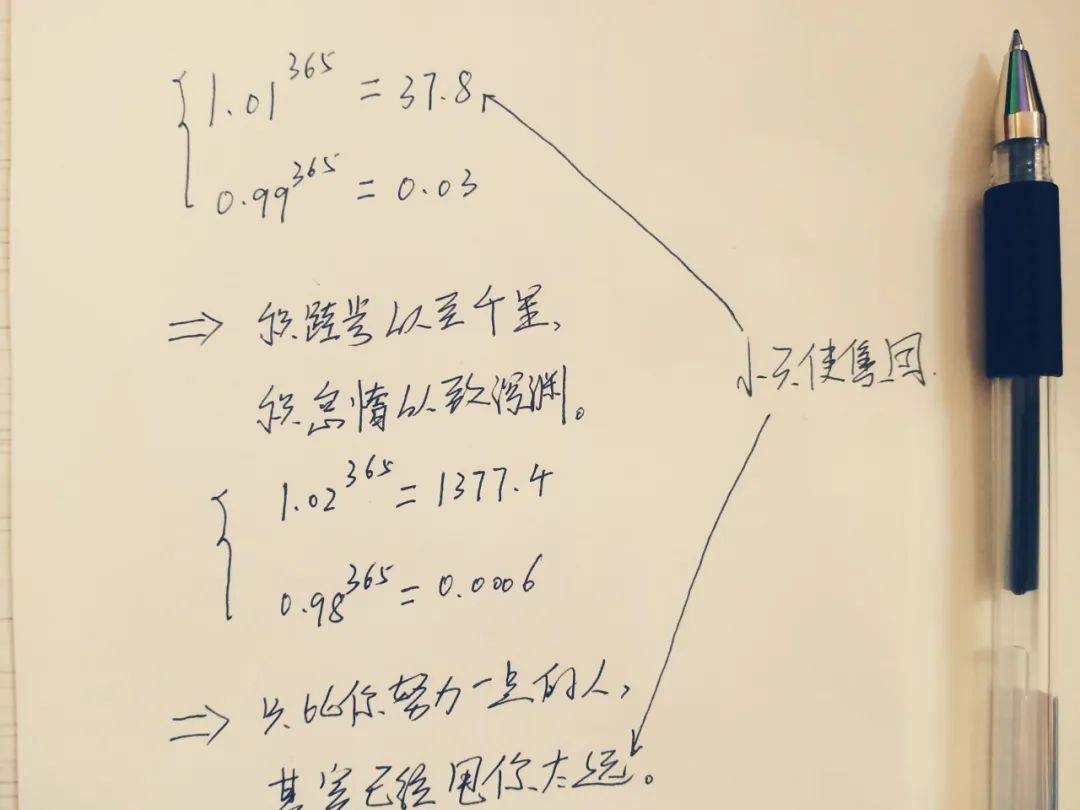 1.01^365 = 37.8
0.99^365 = 0.03
⇒ 积跬步以至千里,
积怠惰以致深渊。
小天使售回.
1.02^365 = 1377.4
0.98^365 = 0.0006
⇒ 只比你努力一点的人,
其实已经甩你太远。